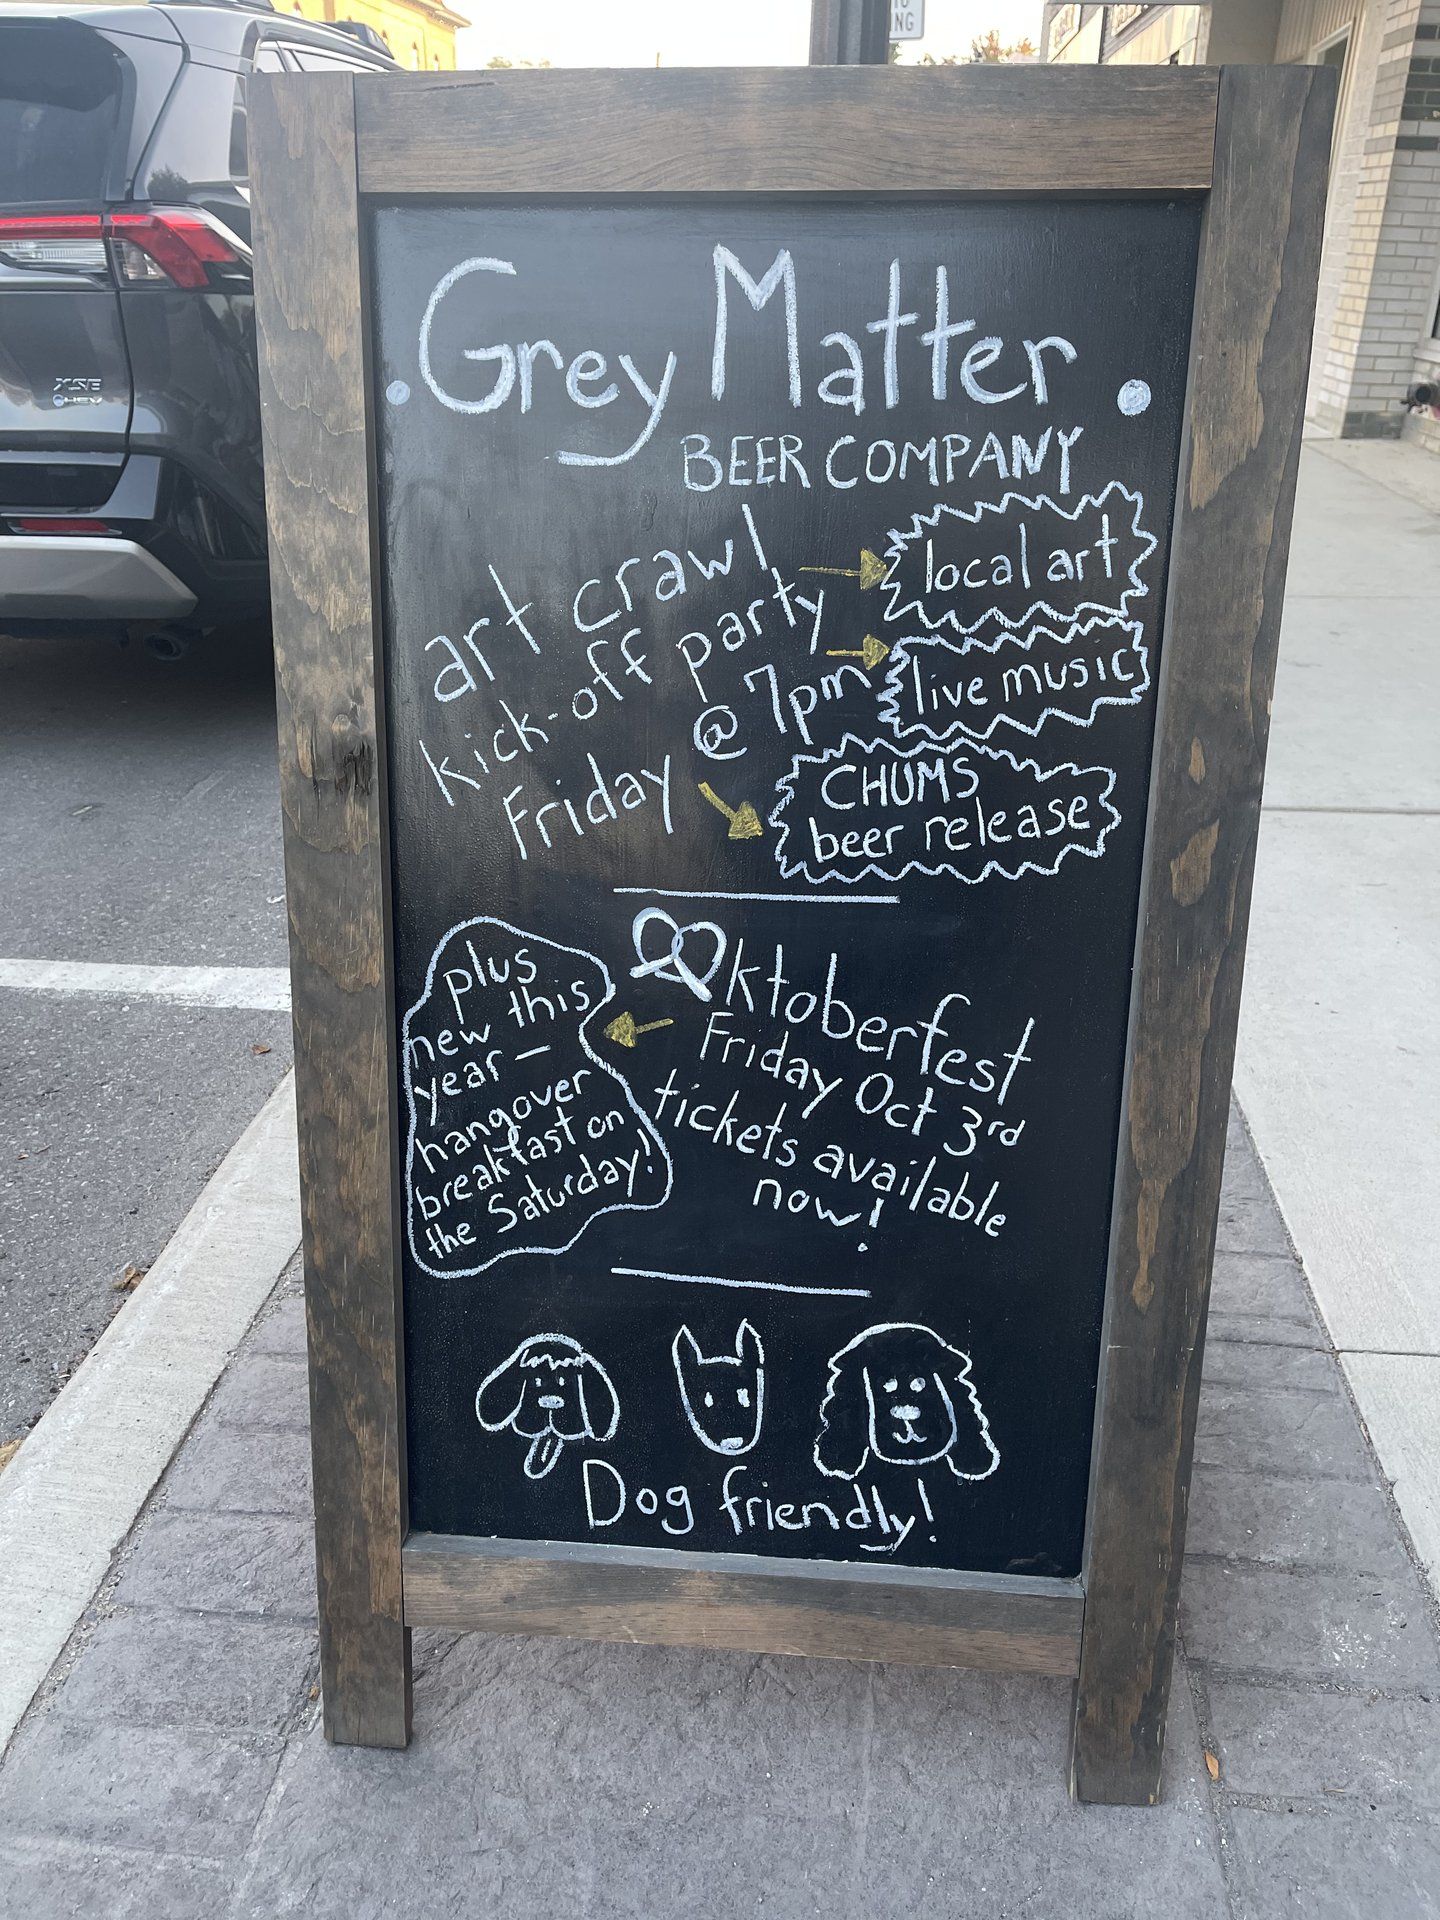 Grey Matter
BEER COMPANY
art crawl
kick-off party
Friday @ 7pm
local art
live music
CHUMS
beer release
plus
new this
year —
hangover
breakfast on
the Saturday!
Oktoberfest
Friday Oct 3rd
tickets available
now!
Dog friendly!
XSE
HEV
NG